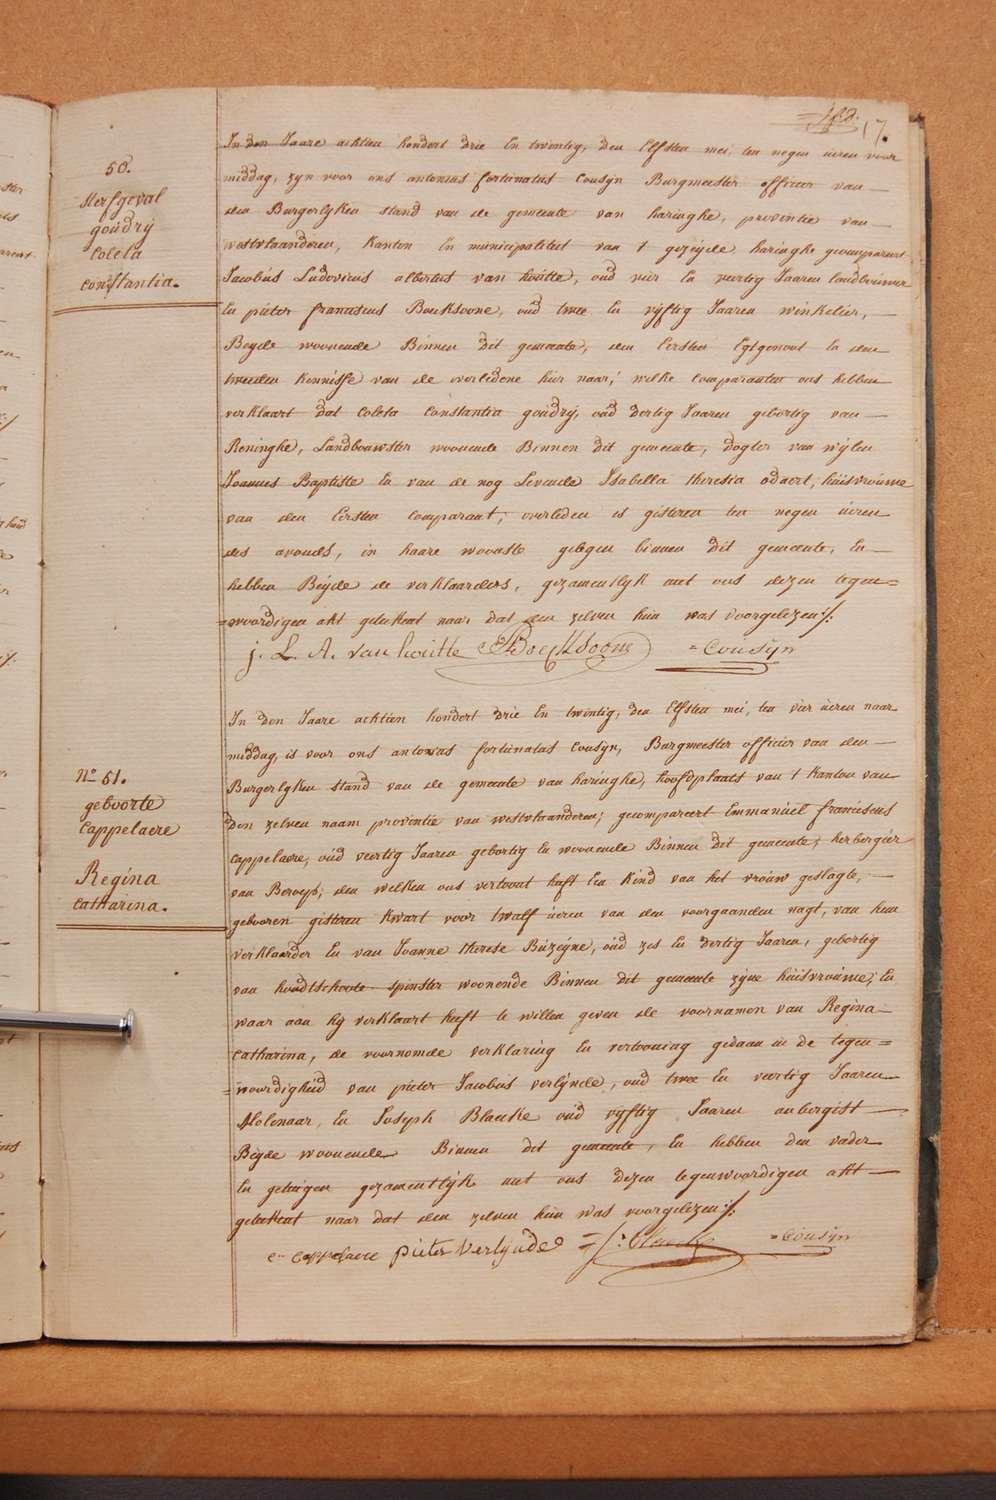 17.
50.
sterfgeval
goudrij
Coleta
constantia.
In den Jaare achtien hondert drie En twintig, den Elfsten mei, ten negen üeren voor
middag, zyn voor ons antonius fortunatus Cousyn Burgmeester officier van
den Burgerlyken stand van de gemeente van haringhe, provintie van
westvlaanderen, Kanton En municipaliteit van t gezeijde haringhe gecompareert
Jacobus Ludovicus albertus van houtte, oud vier En veertig Jaaren landbouwer
En pieter franciscus Boucksoone, oud twee En vyftig Jaaren winkelier,
Beyde woonende Binnen dit gemeente, den Eersten Egtgenoot En den
tweeden Kennisse van de overledene hier naar; welke comparanten ons hebben
verklaart dat Coleta Constantia goudrij, oud dertig Jaaren gebortig van
Reninghe, Landbouwster woonende Binnen dit gemeente, dogter van wijlen
Joannes Baptiste En van de nog Levende Isabella theresia odaert, huisvrouwe
van den Eersten comparant; overleden is gisteren ten negen üeren
des avonds, in haare woonste gelegen binnen dit gemeente, En
hebben Beijde de verklaarders, gezamentlijk met ons dezen tegen=
=woordigen akt geteekent naar dat den zelven hun was voorgelezen ./.
j. L. A. van houtte Boucksoone =Cousijn
No 51.
geboorte
Cappelaere
Regina
Catharina.
In den Jaare achtien hondert drie En twintig, den Elfsten mei, ten vier üeren naar
middag, is voor ons antonius fortunatus Cousyn, Burgmeester officier van den
Burgerlyken stand van de gemeente van haringhe, hoofdplaats van t Kanton van
Den zelven naam provintie van westvlaanderen; gecompareert Emmanuël franciscus
Cappelaere, oud veertig Jaaren geboortig En woonende Binnen dit gemeente, herbergier
van Beroep; den welken ons vertoont heeft Een Kind van het vrouw geslagte,
geboren gisteren kwart voor twalf üeren van den voorgaanden nagt, van hem
verklaarder En van Joanne therese Buzeyne, oud zes En dertig Jaaren, geboortig
van hondtschoote spinster woonende Binnen dit gemeente zijne huisvrouwe; En
waar aan hij verklaart heeft te willen geven de voornamen van Regina
Catharina, de voornomde verklaring En vertooning gedaan in de tegen=
=woordigheid van pieter Jacobus verlynde, oud twee En veertig Jaaren
Molenaar, En Joseph Blanke oud vyftig Jaaren aubergist
Beyde woonende Binnen dit gemeente, En hebben den vader
En getuigen gezamentlijk met ons dezen tegenwoordigen akt
geteekent naar dat den zelven hun was voorgelezen ./.
e cappelaere pieter Verlynde =Cousijn